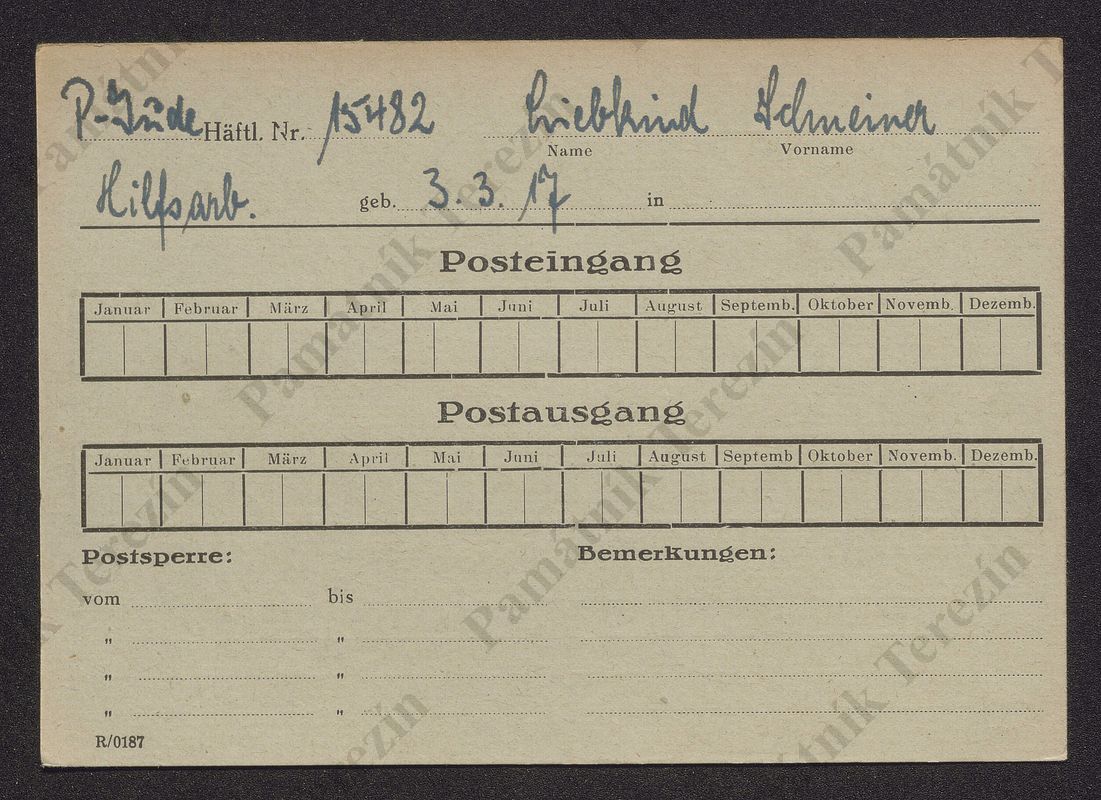 P-Jude Häftl. Nr. 15482 Liebkind Schmeiner
Name Vorname
Hilfsarb. geb. 3. 3. 17 in
Posteingang
Januar Februar März April Mai Juni Juli August Septemb. Oktober Novemb. Dezemb.
Postausgang
Januar Februar März April Mai Juni Juli August Septemb Oktober Novemb. Dezemb.
Postsperre: Bemerkungen:
vom bis
" "
" "
" "
R/0187
Památník Terezín